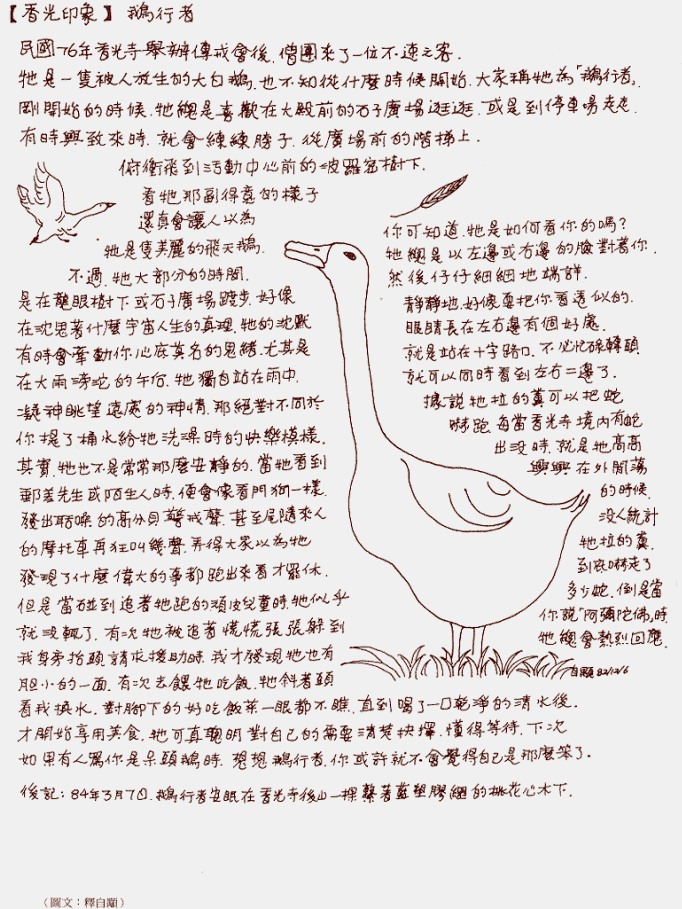 【香光印象】鵝行者
民國76年香光寺舉辦傳戒會後,僧團來了一位不速之客.
牠是一隻被人放生的大白鵝.也不知從什麼時候開始.大家稱牠為「鵝行者」.
剛開始的時候.牠總是喜歡在大殿前的石子廣場逛逛.或是到停車場走走.
有時興致來時.就會練練膀子.從廣場前的階梯上.
俯衝飛到活動中心前的波羅蜜樹下.
看牠那副得意的樣子
還真會讓人以為
牠是隻美麗的飛天鵝.
不過.牠大部分的時間.
是在龍眼樹下或石子廣場踱步.好像
在沈思著什麼宇宙人生的真理.牠的沈默
有時會牽動你心底莫名的思緒.尤其是
在大雨滂沱的午后.牠獨自站在雨中.
凝神眺望遠處的神情.那絕對不同於
你提了桶水給牠洗澡時的快樂模樣.
其實.牠也不是常常那麼安靜的.當牠看到
郵差先生或陌生人時.便會像看門狗一樣.
發出聒噪的高分貝警戒聲.甚至尾隨來人
的摩托車再狂叫幾聲.弄得大家以為牠
發現了什麼偉大的事都跑出來看才罷休.
但是當碰到追著牠跑的頑皮兒童時.牠似乎
就沒輒了.有次牠被追著慌慌張張躲到
我身旁抬頭請求援助時.我才發現牠也有
膽小的一面.有次去餵牠吃飯.牠斜著頭
看我換水.對腳下的好吃飯菜一眼都不瞧.直到喝了一口乾淨的清水後.
才開始享用美食.牠可真聰明對自己的需要清楚抉擇.懂得等待.下次
如果有人罵你是呆頭鵝時.想想鵝行者.你或許就不會覺得自己是那麼笨了.
你可知道.牠是如何看你的嗎?
牠總是以左邊或右邊的臉對著你.
然後仔仔細細地端詳.
靜靜地.好像要把你看透似的.
眼睛長在左右邊有個好處.
就是站在十字路口.不必忙碌轉頭
就可以同時看到左右二邊了.
據說牠拉的糞可以把蛇
嚇跑.每當香光寺境內有蛇
出沒時.就是牠高高
興興在外閒蕩
的時候.
沒人統計
牠拉的糞.
到底嚇走了
多少蛇.倒是當
你說「阿彌陀佛」時.
牠總會熱烈回應.
自顗82/12/6
後記:84年3月7日.鵝行者安眠在香光寺後山一棵繫著藍塑膠繩的桃花心木下.
(圖文:釋自顗)